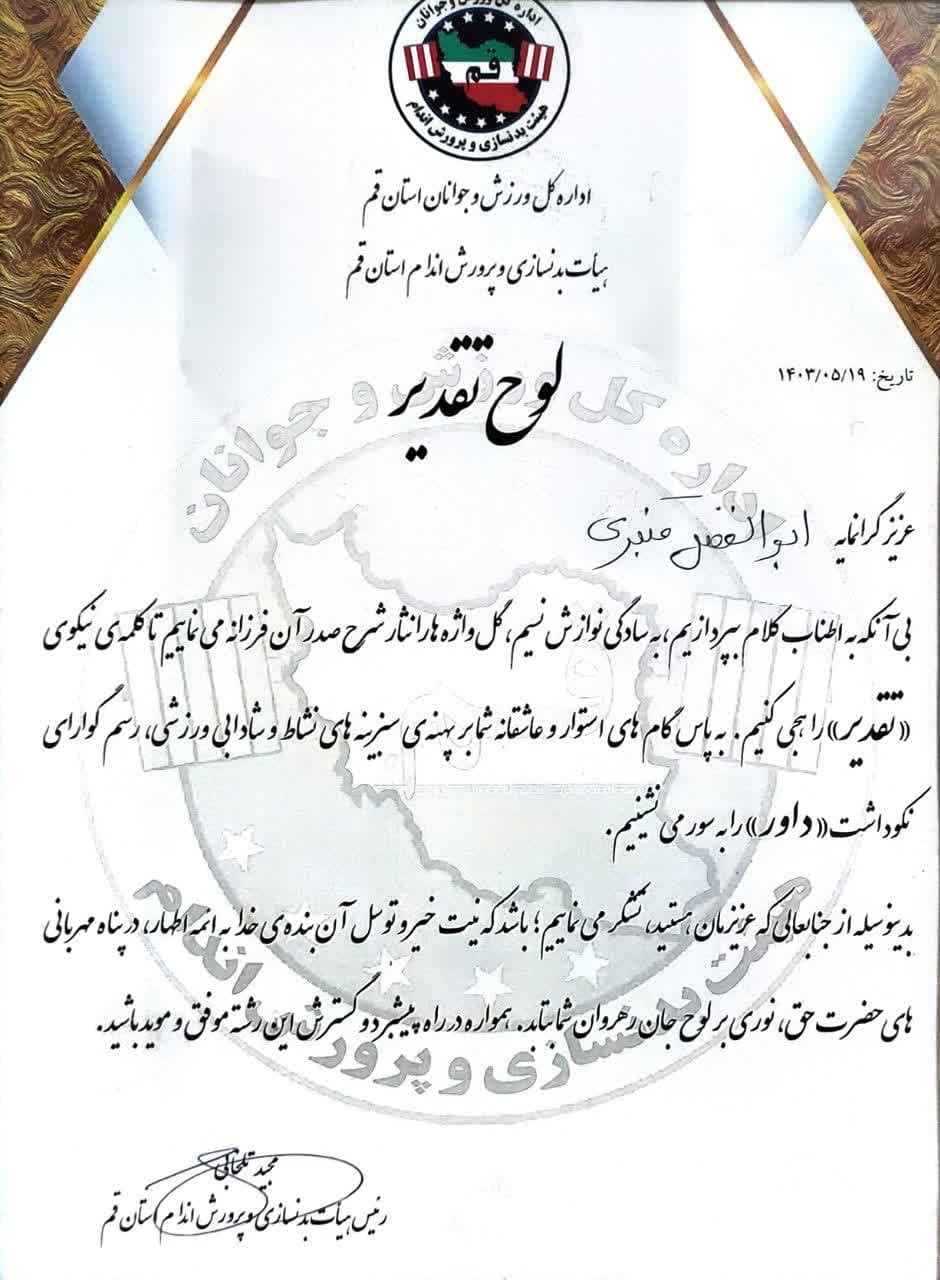 اداره کل ورزش و جوانان
قم
هیئت بدنسازی و پرورش اندام
اداره کل ورزش و جوانان استان قم
هیأت بدنسازی و پرورش اندام استان قم
لوح تقدیر
تاریخ: ۱۴۰۳/۰۵/۱۹
عزیز گرانمایه ابوالفضل منبری
بی آنکه به اطناب کلام بپردازیم، به سادگی نوازش نسیم، گل واژه ها را نثار شرح صدر آن فرزانه می نماییم تا کلمه‌ی نیکوی
«تقدیر» را هجی کنیم. به پاس گام های استوار و عاشقانه شما بر پهنه‌ی سبزینه های نشاط و شادابی ورزشی، رسم گوارای
نکوداشت «داور» را به سور می نشینیم.
بدینوسیله از جنابعالی که عزیزمان هستید، تشکر می نماییم؛ باشد که نیت خیر و توسل آن بنده‌ی خدا به ائمه اطهار، در پناه مهربانی
های حضرت حق، نوری بر لوح جان رهروان شما بتابد. همواره در راه پیشبرد و گسترش این رشته موفق و موید باشید.
مجید
رئیس هیأت بدنسازی و پرورش اندام استان قم